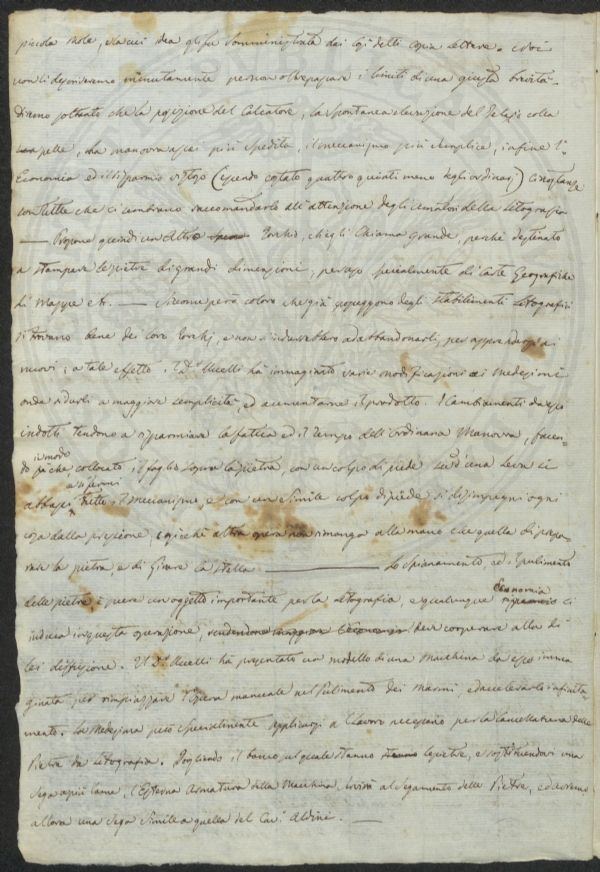 piccola mole, la cui idea gli fu somministrata dai così detti copia lettere. Noi
non li descriveremo minutamente per non oltrepassare i limiti di una giusta brevità.
Diremo soltanto che la posizione del Calcatore, la spontanea elevazione del Telajo colla
pelle, la manovra assai più spedita, il meccanismo più semplice, infine l'
Economia ed il risparmio vistoso (essendo costato quattro quinti meno degli ordinarj) circostanze
son tutte che ci sembrano raccomandarlo all'attenzione degli amatori della Litografia
— Propone quindi un altro Torchio, ch'egli chiama grande, perchè destinato
a stampare le pietre di grandi dimensioni, per uso specialmente di Carte Geografiche
di Mappe etc. — Siccome però coloro che già posseggono degli stabilimenti Litografici
si trovano bene dei loro Torchj, e non s'indurrebbero ad abbandonarli, per apprendersi ai
nuovi; a tale effetto il D.r Ucelli ha immaginato varie modificazioni ai medesimi
onde ridurli a maggiore semplicità, ed aumentarne il prodotto. I Cambiamenti da esso
indotti tendono a risparmiare la fatica ed il tempo dell'ordinaria Manovra, facen-
do in modo che collocato il foglio sopra la pietra, con un colpo di piede su d'una leva si
abbassi tutto il meccanismo, e con un simile colpo di piede si disimpegni ogni
cosa dalla pressione, sicchè altra opera non rimanga alla mano che quella di prepa-
rare la pietra, e di girare la stella — Lo spianamento, ed il pulimento
delle pietre è pure un oggetto importante per la Litografia, e qualunque Economia si
induca in questa operazione, deve cooperare alla di
lei diffusione. Il D.r Ucelli ha presentato un modello di una Macchina da esso imma
ginata per rimpiazzare l'opera manuale nel Pulimento dei Marmi, ed accelerarlo infinita-
mente. La medesima può specialmente applicarsi al lavoro necessario per la Cancellatura delle
Pietre da Litografia. Togliendo il banco sul quale stanno le pietre, e sostituendovi una
sega a più lame, l'esterna armatura della Macchina, servirà al segamento delle Pietre, ed avremo
allora una sega simile a quella del Cav.r Aldini. —